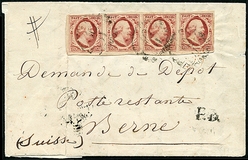 Demande de Dépot
Poste restante
Berne
(Suisse)
P.D.